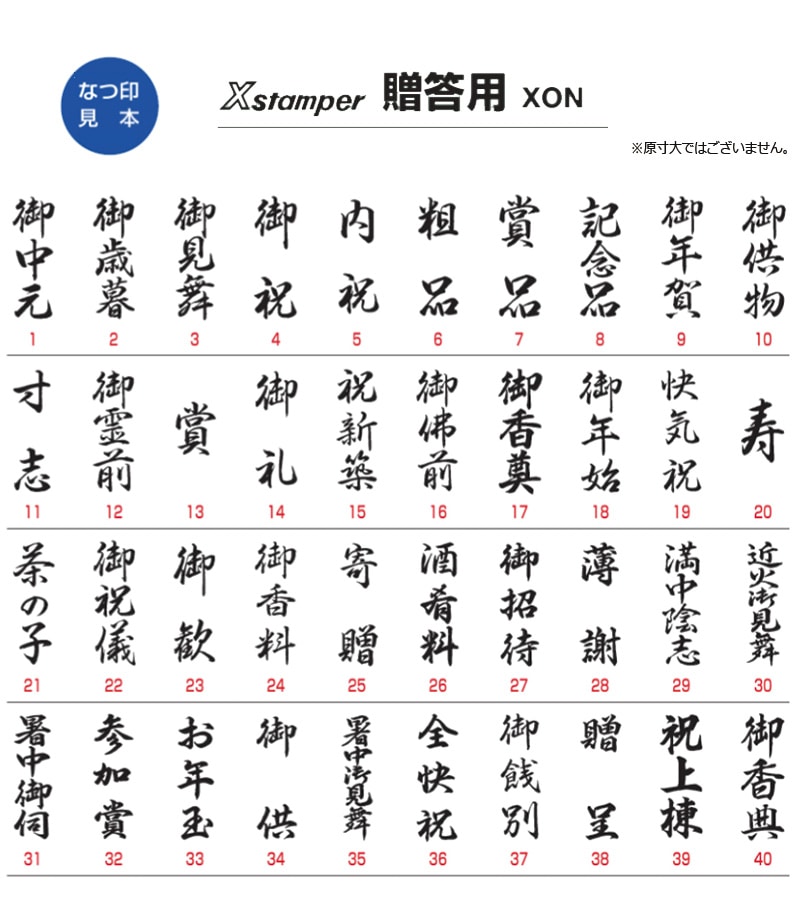 なつ印
見 本
Xstamper 贈答用 XON
※原寸大ではございません。
御中元 1
御歳暮 2
御見舞 3
御祝 4
内祝 5
粗品 6
賞品 7
記念品 8
御年賀 9
御供物 10
寸志 11
御霊前 12
賞 13
御礼 14
祝新築 15
御佛前 16
御香奠 17
御年始 18
快気祝 19
寿 20
茶の子 21
御祝儀 22
御歓 23
御香料 24
寄贈 25
酒肴料 26
御招待 27
薄謝 28
満中陰志 29
近火御見舞 30
暑中御伺 31
参加賞 32
お年玉 33
御供 34
暑中御見舞 35
全快祝 36
御餞別 37
贈呈 38
祝上棟 39
御香典 40